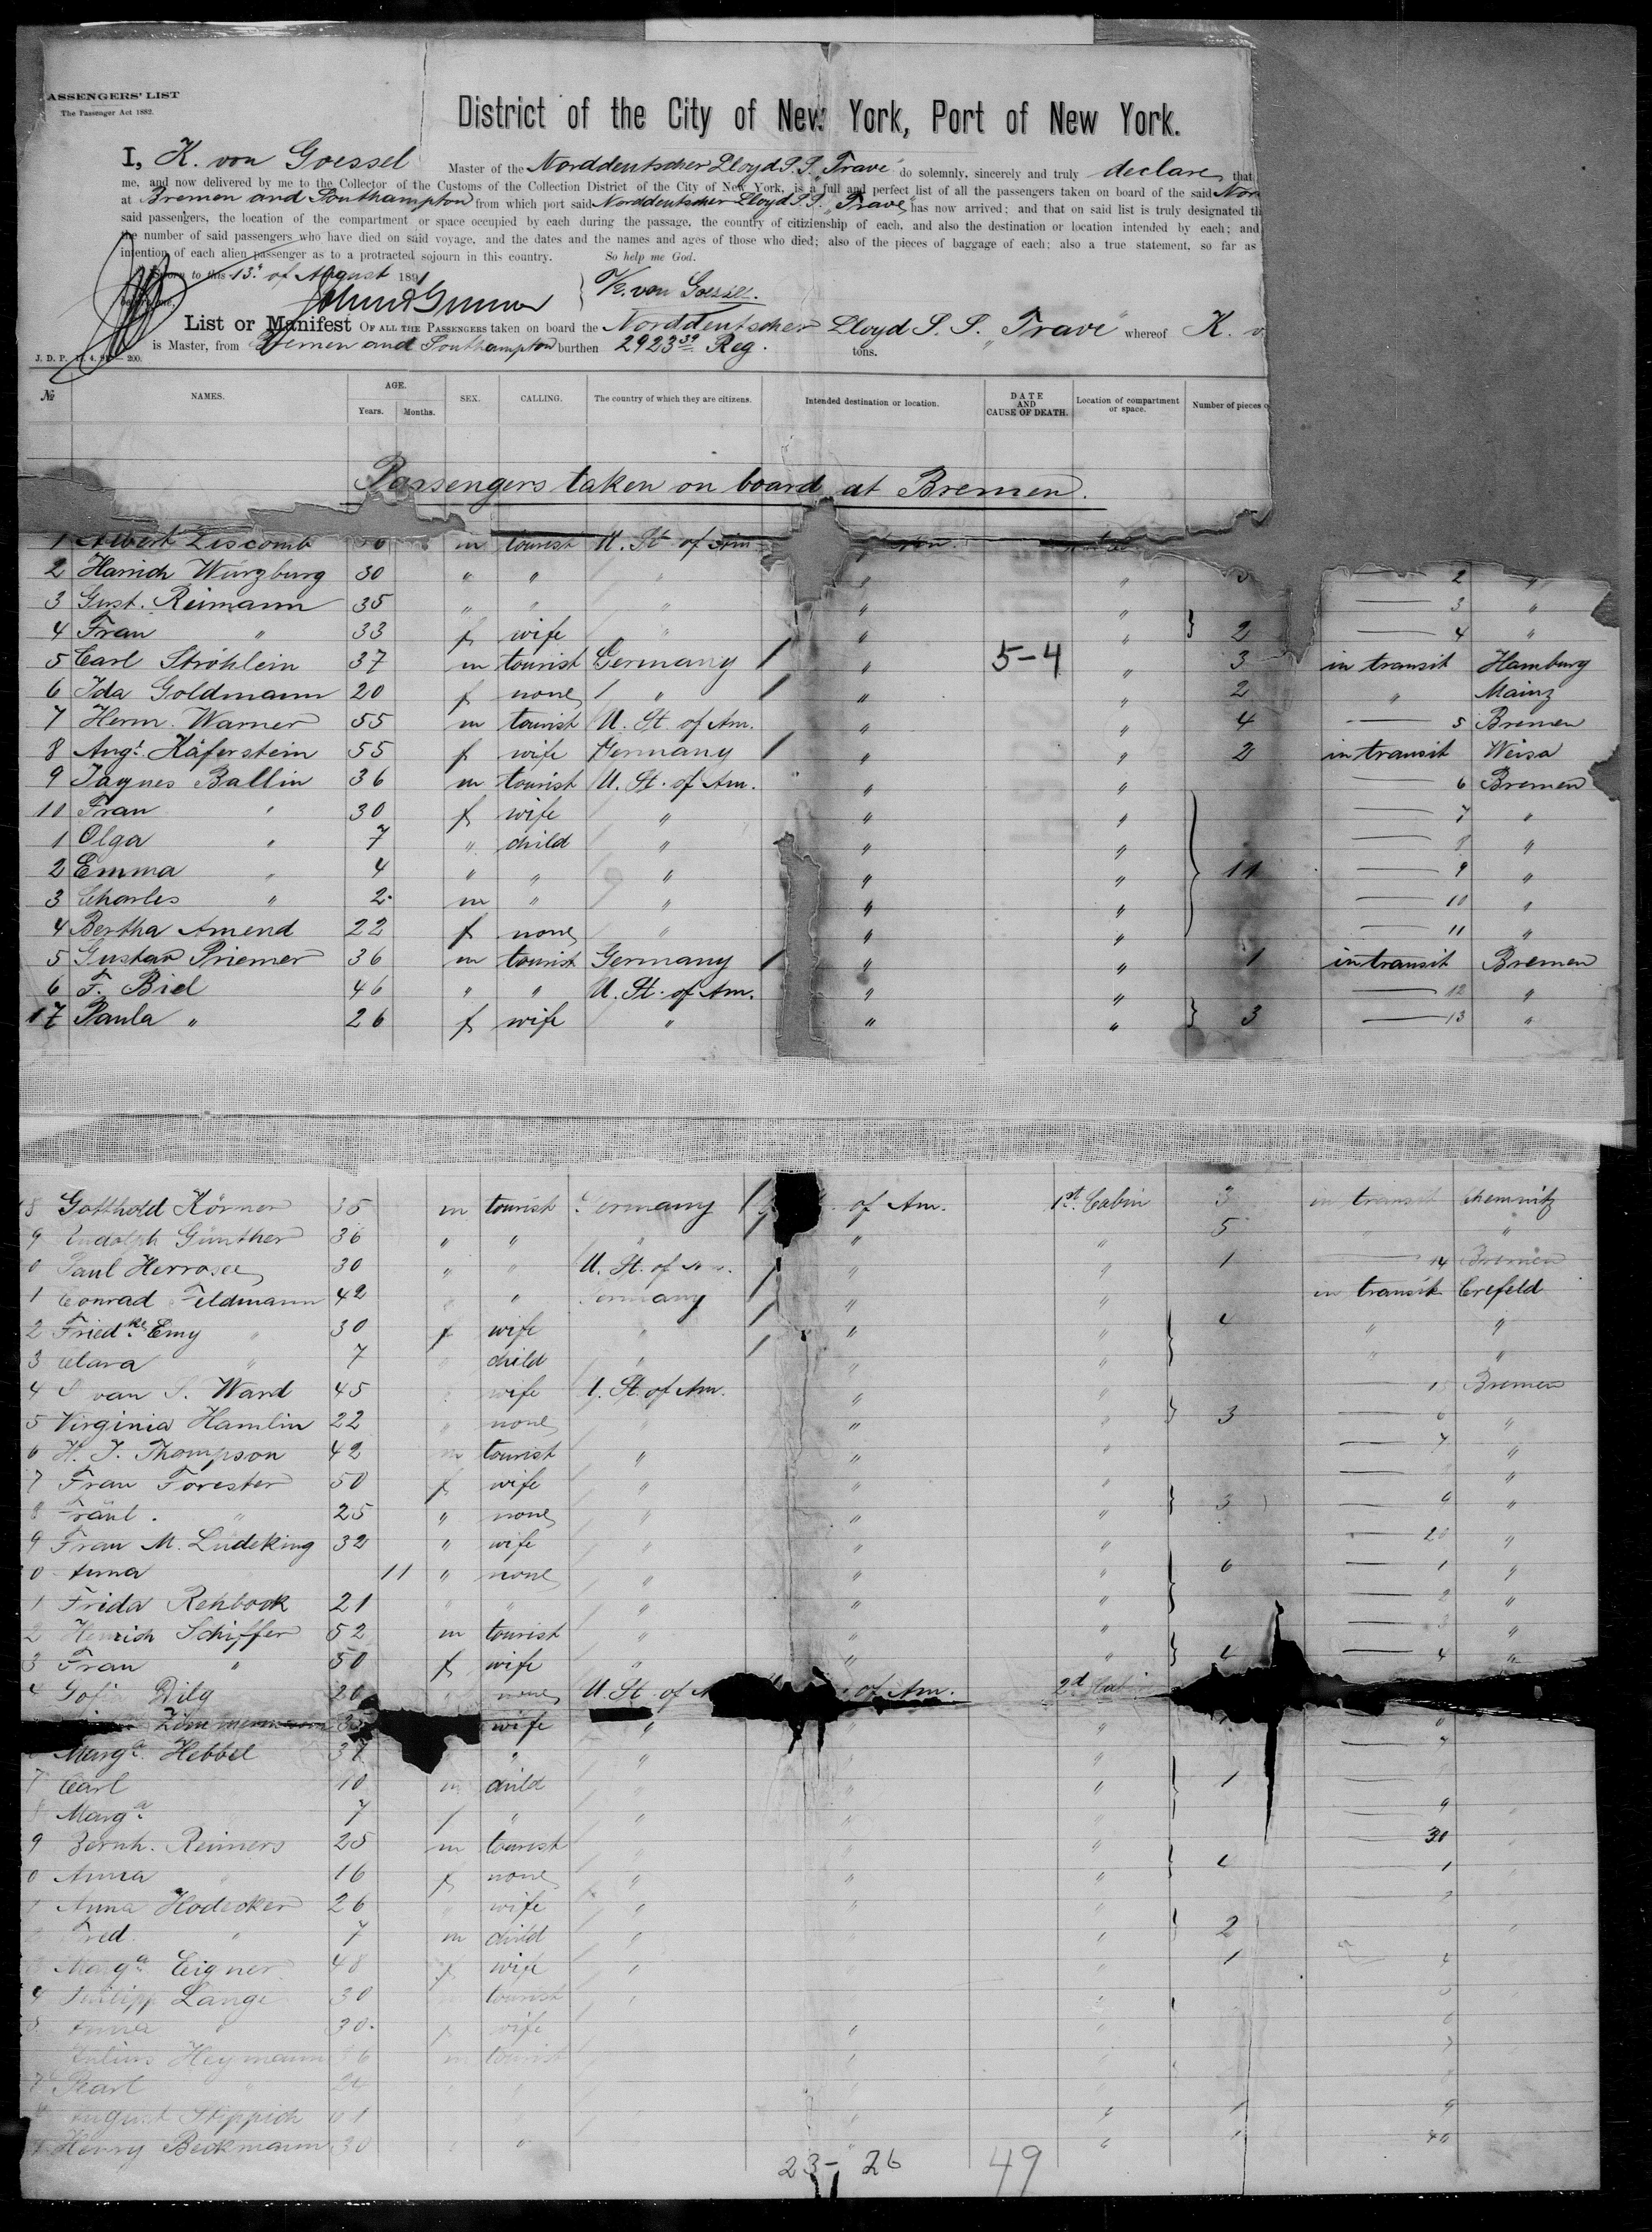 ASSENGERS' LIST
The Passenger Act 1882.
District of the City of New York, Port of New York.
I, K. von Goessel Master of the Norddeutscher Lloyd S. S. "Trave" do solemnly, sincerely and truly declare that
me, and now delivered by me to the Collector of the Customs of the Collection District of the City of New York, is a full and perfect list of all the passengers taken on board of the said Nor
at Bremen and Southampton from which port said Norddeutscher Lloyd S. S. "Trave" has now arrived; and that on said list is truly designated th
said passengers, the location of the compartment or space occupied by each during the passage, the country of citizienship of each, and also the destination or location intended by each; and
the number of said passengers who have died on said voyage, and the dates and the names and ages of those who died; also of the pieces of baggage of each; also a true statement, so far as
intention of each alien passenger as to a protracted sojourn in this country. So help me God.
to this 13. of August 1891
K. von Goessel.
List or Manifest OF ALL THE PASSENGERS taken on board the Norddeutscher Lloyd S. S. "Trave" whereof K. v
is Master, from Bremen and Southampton burthen 2923 39 Reg. tons.
J. D. P. 4. 9 200.
№ NAMES. AGE. Years. Months. SEX. CALLING. The country of which they are citizens. Intended destination or location. DATE AND CAUSE OF DEATH. Location of compartment or space. Number of pieces o
Passengers taken on board at Bremen.
1 Albert Liscomb m tourist U. St. of Am
2 Hanich Würzburg 30 " " " " " 2 "
3 Gust. Reimann 35 " " " " " 3 "
4 Frau " 33 f wife " " " 2 4 "
5 Carl Ströhlein 37 m tourist Germany " 5-4 " 3 in transit Hamburg
6 Ida Goldmann 20 f none " " " 2 " Mainz
7 Herm. Warner 55 m tourist U. St. of Am. " " 4 5 Bremen
8 Augt. Käferstein 55 f wife Germany " " 2 in transit Weisa
9 Jaques Ballin 36 m tourist U. St. of Am. " " 6 Bremen
10 Frau " 30 f wife " " " 7 "
1 Olga " 7 " child " " " 8 "
2 Emma " 4 " " " " " 11 9 "
3 Charles " 2 m " " " " 10 "
4 Bertha Amend 22 f none " " " 11 "
5 Gustav Priemer 36 m tourist Germany " " 1 in transit Bremen
6 F. Biel 46 " " U. St. of Am. " " 12 "
17 Paula " 26 f wife " " " 3 13 "
18 Gotthold Körner 35 m tourist Germany of Am. 1st. Cabin 3 in transit Chemnitz
9 Rudolph Günther 36 " " " " " 5 " "
0 Paul Herrosee 30 " " U. St. of " " 1 14 Bremen
1 Conrad Feldmann 42 " " Germany " " in transit Crefeld
2 Friedke. Emy " 30 f wife " " " 4 " "
3 Clara " 7 " child " " " " "
4 van S. Ward 45 wife St. of Am. " " Bremen
5 Virginia Hamlin 22 " none " " " 3 6 "
6 H. J. Thompson 42 m tourist " " " 7 "
7 Frau Forester 50 f wife " " " "
8 Fräul. " 25 " none " " " 3 9 "
9 Frau M. Ludeking 32 " wife " " " 20 "
0 Anna 11 " none " " " 6 1 "
1 Frida Rehbock 21 " " " " " 2 "
2 Heinrich Schiffer 52 m tourist " " " 3 "
3 Frau " 50 f wife " " " 4 4 "
4 Dilg 20 none U. St. of of Am. 2d
Zimmermann 35 wife " " " 6
Marga. Hebbel 37 " " " 7
7 Carl 10 m child " " " 1
8 Marga. 7 f " " " 9
9 Bernh. Reimers 25 m tourist " " " 30
0 Anna 16 f none " " " 4 1
Anna Hodecker 26 wife " " "
Fred. " 7 m child " " 2
Marga. Eigner 48 f wife " " 1
4 Philipp Lange 30 tourist " "
Anna 30 f wife " "
Julius Heymann m tourist "
Pearl 24
August Stippich " 1 9
Henry Beckmann 30 " " 1 40
23- 26 49